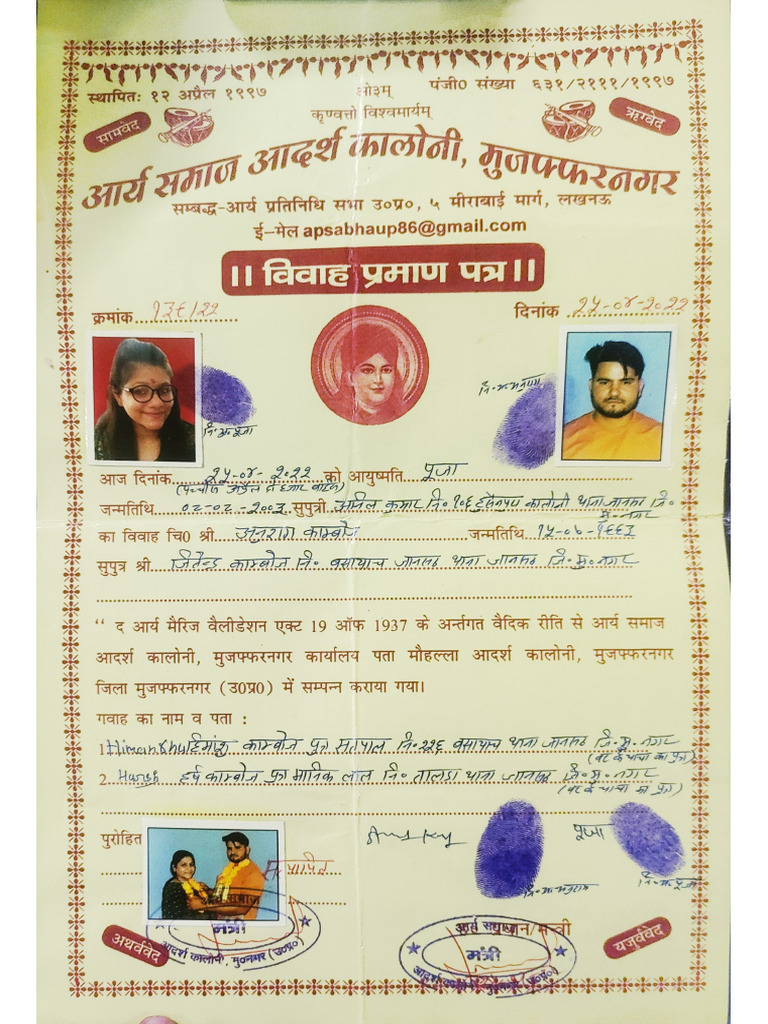 स्थापितः १२ अप्रैल १९९७
ओ३म्
पंजी0 संख्या ६३१/२१११/१९९७
कृण्वन्तो विश्वमार्यम्
सामवेद
ऋग्वेद
आर्य समाज आदर्श कालोनी, मुजफ्फरनगर
सम्बद्ध-आर्य प्रतिनिधि सभा उ०प्र०, ५ मीराबाई मार्ग, लखनऊ
ई-मेल apsabhaup86@gmail.com
।। विवाह प्रमाण पत्र ।।
क्रमांक
दिनांक २५-०४-२०२२
नि०अ०पूजा
आज दिनांक २५-०४-२०२२ को आयुष्मति पूजा
जन्मतिथि ०८-०८-२००३ सुपुत्री अनिल कुमार नि० १०६ कालोनी थाना जानसठ जि०
मु० नगर
का विवाह चि0 श्री अनुराग काम्बोज जन्मतिथि
सुपुत्र श्री जितेन्द्र काम्बोज नि० बसायाच जानसठ थाना जानसठ जि० मु० नगर
“ द आर्य मैरिज वैलीडेशन एक्ट 19 ऑफ 1937 के अर्न्तगत वैदिक रीति से आर्य समाज
आदर्श कालोनी, मुजफ्फरनगर कार्यालय पता मौहल्ला आदर्श कालोनी, मुजफ्फरनगर
जिला मुजफ्फरनगर (उ0प्र0) में सम्पन्न कराया गया।
गवाह का नाम व पता :
1. Himanshu हिमांशु काम्बोज पुत्र सतपाल नि० २२६ बसायाच थाना जानसठ जि० मु० नगर
(वर के चाचा का पुत्र)
2. Harsh हर्ष काम्बोज पुत्र मानिक लाल नि० तालडा थाना जानसठ जि० मु० नगर
(वर के चाचा का पुत्र)
पुरोहित
पूजा
नि०अ०पूजा
आर्य समाज
मंत्री
आदर्श कालोनी, मु०नगर (उ०प्र०)
आर्य समाज
मंत्री
अथर्ववेद
यजुर्ववेद